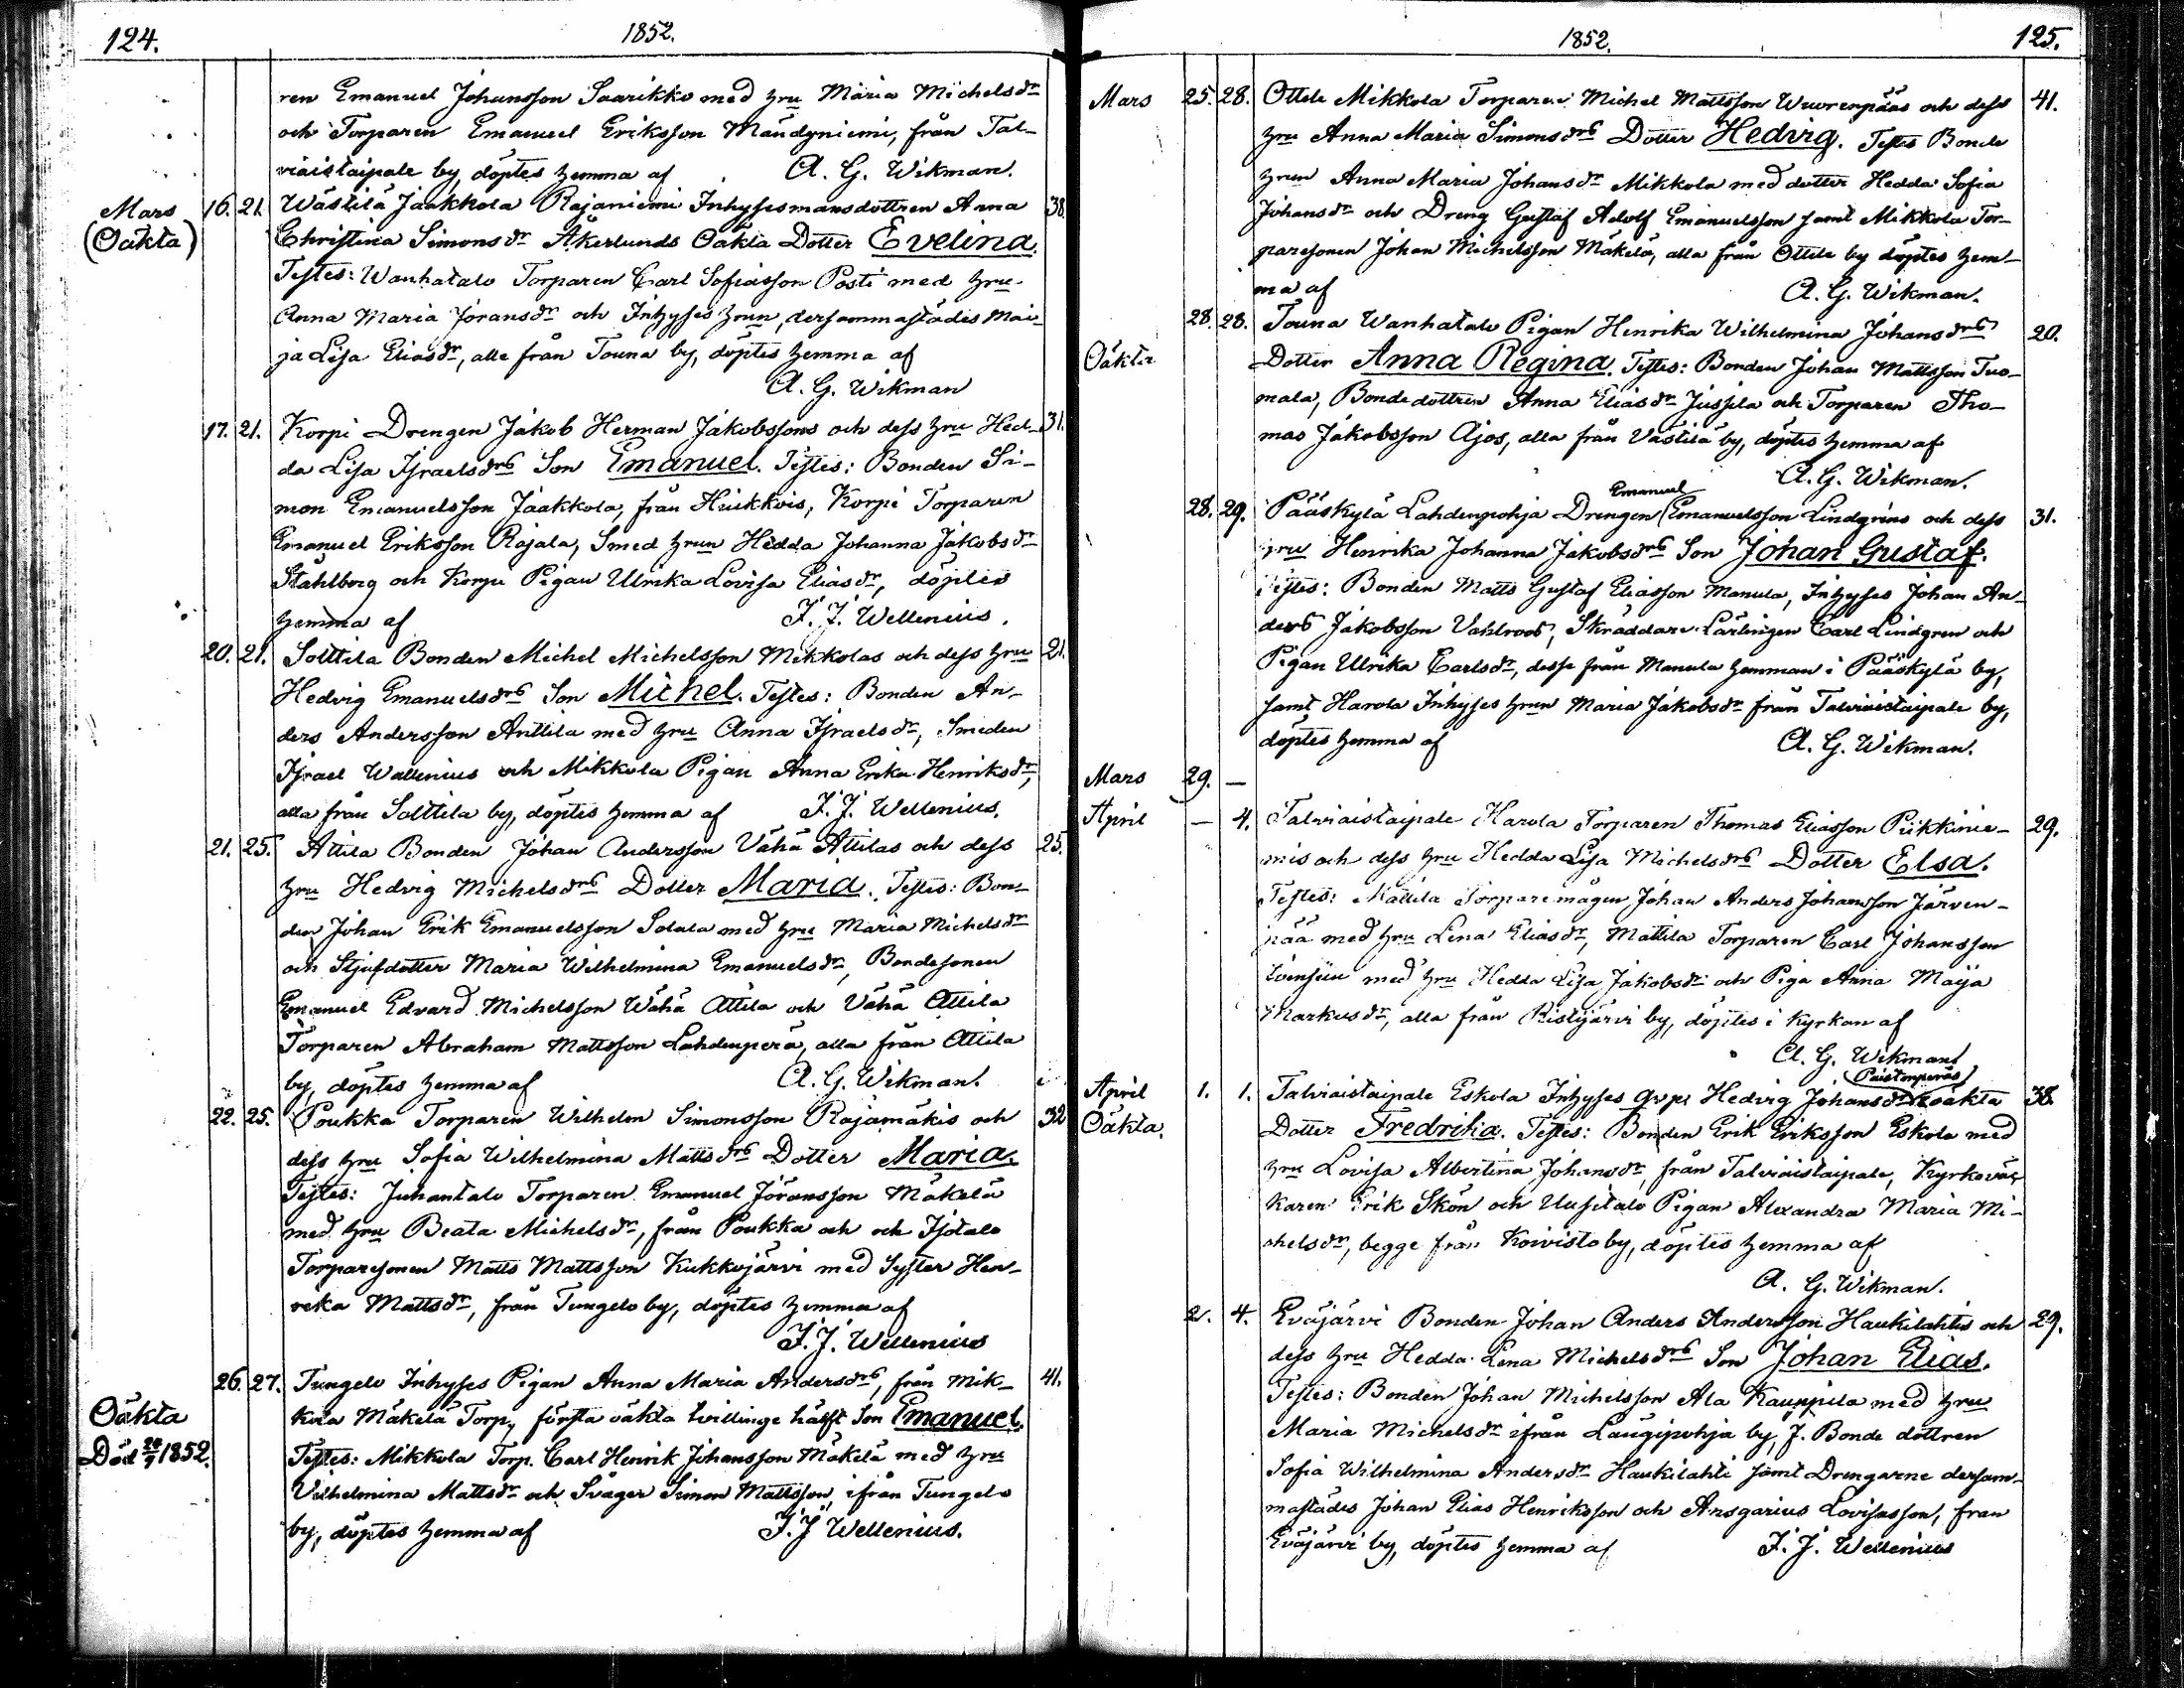 124. 1852.
ren Emanuel Johansson Saarikko med hru Maria Michelsdr
och Torparen Emanuel Eriksson Mändyniemi, från Tal-
viaistaipale by, döptes hemma af A. G. Wikman.
Mars 16. 21. Wästilä Jaakkola Rajaniemi Inhysesmansdottren Anna 38.
(Oäkta) Christina Simonsdr Åkerlunds Oäkta Dotter Evelina.
Testes: Wanhatalo Torparen Carl Sofiasson Posti med hru
Anna Maria Joransdr och Inhyses hrun, dersammastädes Mai-
ja Lisa Eliasdr, alle från Touna by, döptes hemma af
A. G. Wikman
17. 21. Korpi Drengen Jakob Herman Jakobssons och dess hru Hed- 31.
da Lisa Israelsdrs Son Emanuel. Testes: Bonden Si-
mon Emanuelsson Jaakkola, från Huikkois, Korpi Torparen
Emanuel Eriksson Rajala, Smed hrun Hedda Johanna Jakobsdr
Ståhlberg och Korpi Pigan Ulrika Lovisa Eliasdr, döptes
hemma af F. J. Wellenius.
20. 21. Solttila Bonden Michel Michelsson Mikkolas och dess hru 21.
Hedvig Emanuelsdrs Son Michel. Testes: Bonden An-
ders Andersson Anttila med hru Anna Israelsdr, Smeden
Israel Wallenius och Mikkola Pigan Anna Erika Henriksdr,
alla från Solttila by, döptes hemma af F. J. Wellenius.
21. 25. Attila Bonden Johan Andersson Vähä Attilas och dess 25.
hru Hedvig Michelsdrs Dotter Maria. Testes: Bon-
den Johan Erik Emanuelsson Solala med hru Maria Michelsdr
och Stjufdotter Maria Wilhelmina Emanuelsdr, Bondesonen
Emanuel Edvard Michelsson Wähä Attila och Vähä Attila
Torparen Abraham Mattsson Lahdenperä, alla från Attila
by, döptes hemma af A. G. Wikman.
22. 25. Poukka Torparen Wilhelm Simonsson Rajamäkis och 32
dess hru Sofia Wilhelmina Mattsdrs Dotter Maria.
Testes: Juhantalo Torparen Emanuel Joransson Mäkelä
med hru Beata Michelsdr, från Poukka och och Isotalo
Torparesonen Matts Mattsson Kukkojärvi med Syster Hen-
rika Mattsdr, från Tungelo by, döptes hemma af
F. J. Wellenius
26. 27. Tungelo Inhyses Pigan Anna Maria Andersdrs, från Mik- 41.
Oäkta kola Mäkelä Torp, första oäkta tvillinge hälft Son Emanuel.
Död 28/7 1852. Testes: Mikkola Torp. Carl Henrik Johansson Mäkelä med hru
Vilhelmina Mattsdr och Svåger Simon Mattsson, ifrån Tungelo
by, döptes hemma af F. J Wellenius.
1852. 125.
Mars 25. 28. Ottola Mikkola Torparen Michel Mattsson Wuorenpääs och dess 41.
hru Anna Maria Simonsdrs Dotter Hedvig. Testes Bonde
hrun Anna Maria Johansdr Mikkola med dotter Hedda Sofia
Johansdr och Dreng Gustaf Adolf Emanuelsson samt Mikkola Tor-
paresonen Johan Michelsson Mäkelä, alla från Ottila by döptes hem-
ma af A. G. Wikman.
28. 28. Touna Wanhatalo Pigan Henrika Wilhelmina Johansdrs 20.
Oäkta Dotter Anna Regina. Testes: Bonden Johan Mattsson Tuo-
mala, Bondedottren Anna Eliasdr Jussila och Torparen Tho-
mas Jakobsson Ajos, alla från Västilä by, döptes hemma af
A. G. Wikman.
Emanuel
28. 29. Pääskylä Lahdenpohja Drengen Emanuelsson Lindgrens och dess 31.
hru Henrika Johanna Jakobsdrs Son Johan Gustaf.
Testes: Bonden Matts Gustaf Eliasson Manula, Inhyses Johan An-
ders Jakobsson Vahlroos, Skräddare Lärlingen Carl Lindgren och
Pigan Ulrika Carlsdr, desse från Manula hemman i Pääskylä by,
samt Harola Inhyses hrun Maria Jakobsdr från Talviaistaipale by,
döptes hemma af A. G. Wikman.
Mars 29. —
April — 4. Talviaistaipale Harola Torparen Thomas Eliasson Piikkinie- 29.
mis och dess hru Hedda Lisa Michelsdrs Dotter Elsa.
Testes: Mattila Torparemågen Johan Anders Johansson Järven-
pää med hru Lena Eliasdr, Mattila Torparen Carl Johansson
med hru Hedda Lisa Jakobsdr och Piga Anna Maija
Markusdr, alla från Ristijärvi by, döptes i Kyrkan af
A. G. Wikman
Paistonperäs
April 1. 1. Talviaistaipale Eskola Inhyses Hedvig Johansdr oäkta 38.
Oäkta. Dotter Fredrika. Testes: Bonden Erik Eriksson Eskola med
hru Lovisa Albertina Johansdr, från Talviaistaipale, Kyrkoväk-
karen Erik Skön och Uusitalo Pigan Alexandra Maria Mi-
chelsdr, begge från Koivisto by, döptes hemma af
A. G. Wikman.
2. 4. Eväjärvi Bonden Johan Anders Andersson Haukilahtis och 29.
dess hru Hedda Lena Michelsdrs Son Johan Elias.
Testes: Bonden Johan Michelsson Ala Kauppila med hru
Maria Michelsdr ifrån Laugipohja by, f. Bonde dottren
Sofia Wilhelmina Andersdr Haukilahti samt Drengarne dersam-
mastädes Johan Elias Henriksson och Ansgarius Lovisasson, från
Eväjärvi by, döptes hemma af F. J. Wellenius